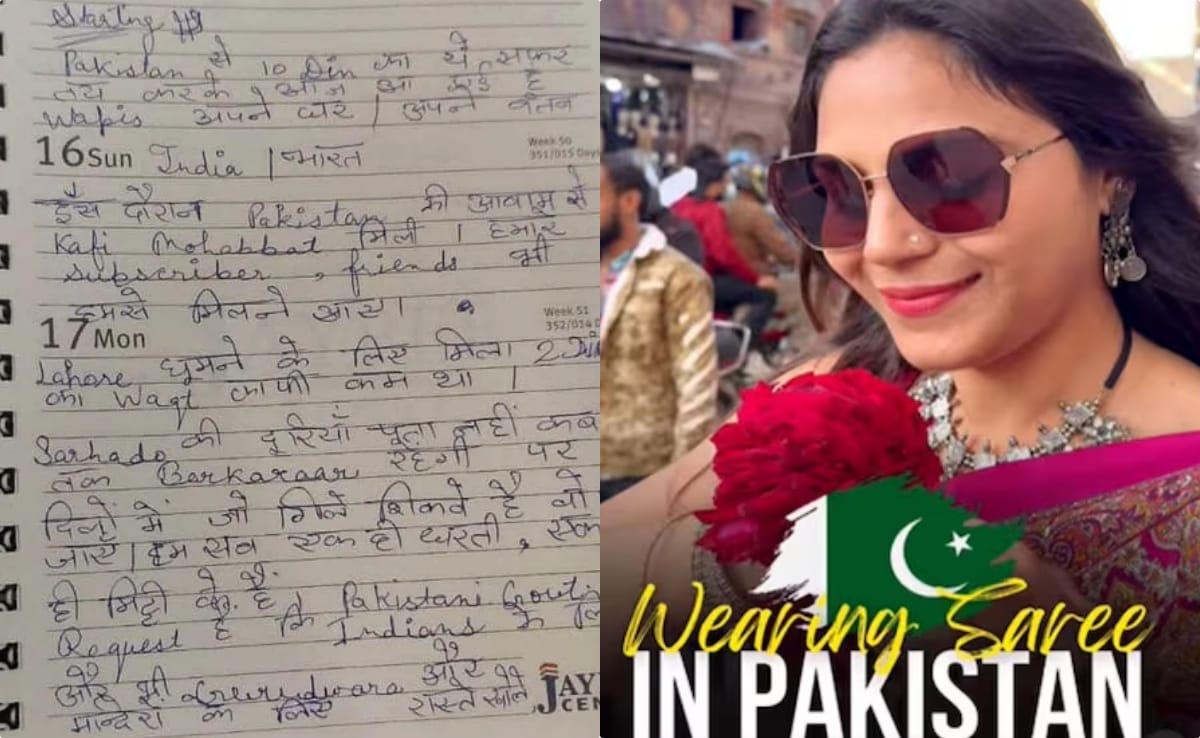 Starting
Pakistan से 10 Din का ये सफर
तय करके आज आ गई है
Wapis अपने घर | अपने वतन
Week 50
351/015 Days
16 Sun India | भारत
इस दौरान Pakistan की आवाम से
Kafi Mohabbat मिली । हमारे
subscriber, friends भी
हमसे मिलने आए।
Week 51
352/014
17 Mon
Lahore घूमने के लिए मिला 2 Din
का Waqt काफी कम था ।
Sarhado की दूरियाँ पता नहीं कब
तक Barkaraar रहेगी पर
दिलों में जो गिले शिकवे है वो
जाए। हम सब एक ही धरती, एक
ही मिट्टी के है। Pakistani
Request है कि Indians के
और भी Gurudwara और
मन्दिरों के लिए रास्ते खोले
JAY
CEN
Wearing Saree
IN PAKISTAN